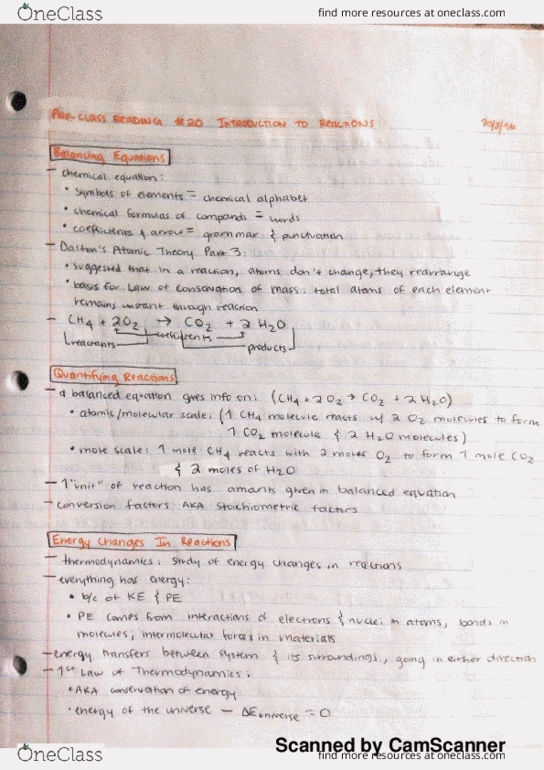 OneClass
find more resources at oneclass.com
PRE-CLASS READING #20 INTRODUCTION TO REACTIONS
Balancing Equations
- chemical equation:
• symbols of elements = chemical alphabet
• chemical formulas of compands = words
• coefficients & arrow = grammar & punctuation
- Dalton's Atomic Theory Part 3:
• suggested that in a reaction, atoms don't change, they rearrange
• basis for Law of conservation of mass: total atoms of each element
remains constant through reaction
- CH4 + 2O2 → CO2 + 2 H2O
reactants coefficients products
Quantifying Reactions
- a balanced equation gives info on: (CH4 + 2O2 → CO2 + 2 H2O)
• atomic/molecular scale: (1 CH4 molecule reacts w/ 2 O2 molecules to form
1 CO2 molecule & 2 H2O molecules)
• mole scale: 1 mole CH4 reacts with 2 moles O2 to form 1 mole CO2
& 2 moles of H2O
- 1 "unit" of reaction has amants given in balanced equation
- conversion factors AKA stoichiometric factors
Energy Changes In Reactions
- thermodynamics: study of energy changes in reactions
- everything has energy:
• b/c of KE & PE
• PE comes from interactions of electrons & nuclei in atoms, bonds in
molecules, intermolecular forces in materials
- energy transfers between system & its surroundings, going in either direction
- 1st Law of Thermodynamics:
• AKA conservation of energy
• energy of the universe - ΔEuniverse = 0
Scanned by CamScanner
OneClass
find more resources at oneclass.com